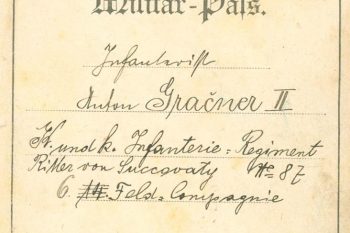 Militär-Pass.
Infanterist
Anton Gračner II
K. und k. Infanterie-Regiment
Ritter von Succovaty No 87
6. Feld-Compagnie